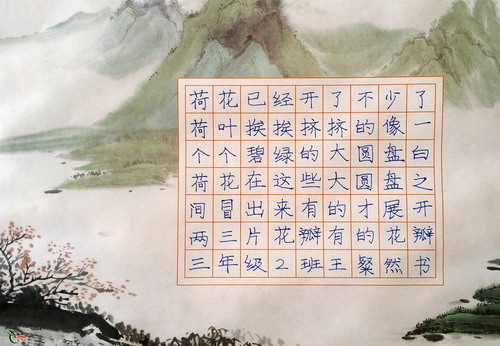 荷花已经开了不少了
荷叶挨挨挤挤的像一
个个碧绿的大圆盘白
荷花在这些大圆盘之
间冒出来有的才展开
两三片花瓣有的花瓣
三年级2班王粲然书